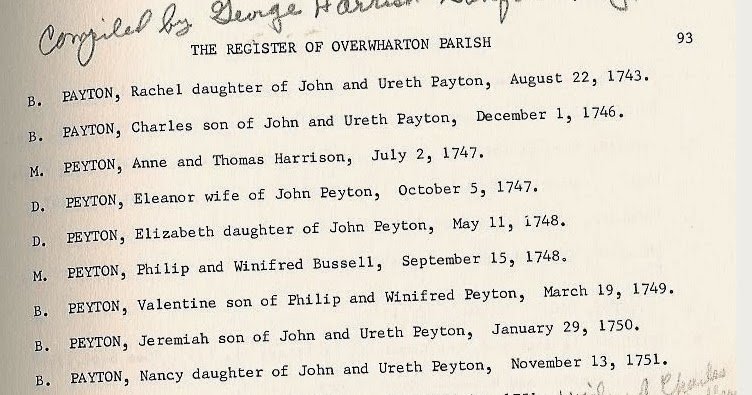 Compiled by George Harrison
THE REGISTER OF OVERWHARTON PARISH 93
B. PAYTON, Rachel daughter of John and Ureth Payton, August 22, 1743.
B. PAYTON, Charles son of John and Ureth Payton, December 1, 1746.
M. PEYTON, Anne and Thomas Harrison, July 2, 1747.
D. PEYTON, Eleanor wife of John Peyton, October 5, 1747.
D. PEYTON, Elizabeth daughter of John Peyton, May 11, 1748.
M. PEYTON, Philip and Winifred Bussell, September 15, 1748.
B. PEYTON, Valentine son of Philip and Winifred Peyton, March 19, 1749.
B. PEYTON, Jeremiah son of John and Ureth Peyton, January 29, 1750.
B. PAYTON, Nancy daughter of John and Ureth Peyton, November 13, 1751.
Charles